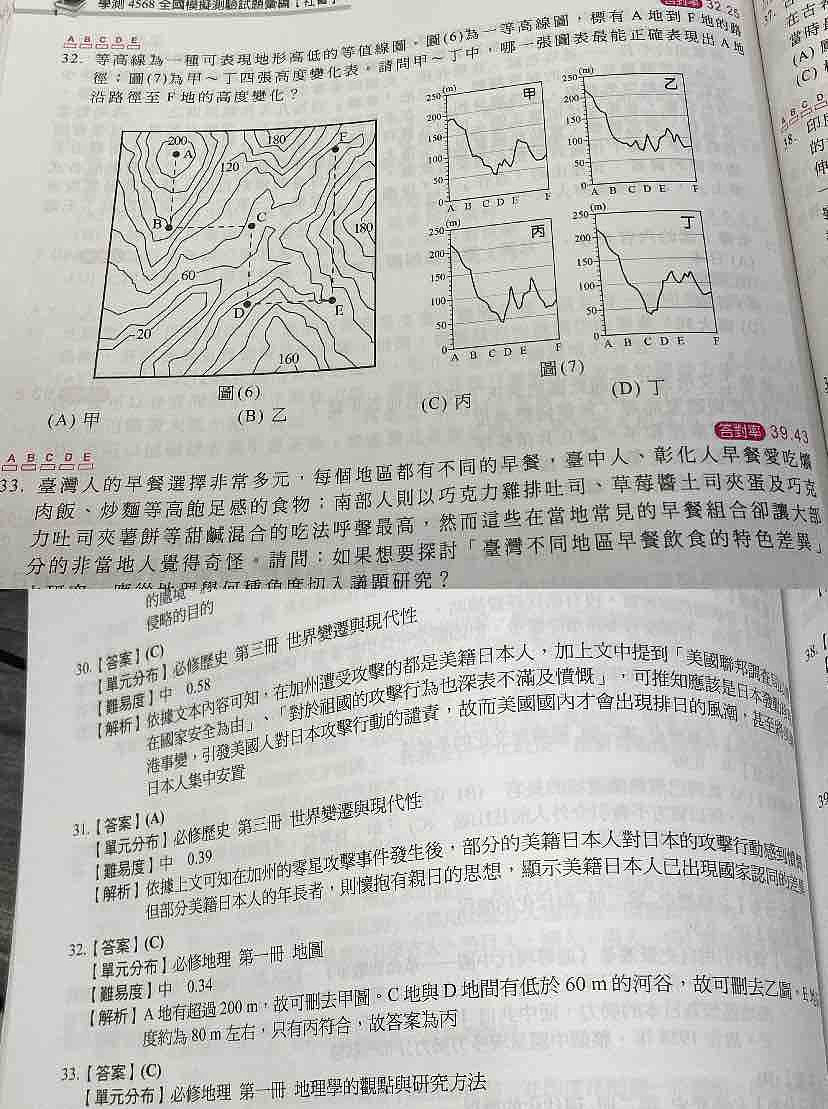 學測 4568 全國模擬測驗試題彙編【社會】
答對率 32.25
A B C D E
32. 等高線為一種可表現地形高低的等值線圖。圖(6)為一等高線圖,標有 A 地到 F 地的路
徑;圖(7)為甲~丁四張高度變化表。請問甲~丁中,哪一張圖表最能正確表現出 A 地
沿路徑至 F 地的高度變化?
200
A
180
F
120
B
C
180
60
D
E
20
160
圖(6)
250 (m) 甲
200
150
100
50
0
A B C D E F
250 (m) 乙
200
150
100
50
0
A B C D E F
250 (m) 丙
200
150
100
50
0
A B C D E F
250 (m) 丁
200
150
100
50
0
A B C D E F
圖(7)
(A) 甲
(B) 乙
(C) 丙
(D) 丁
答對率 39.43
A B C D E
33. 臺灣人的早餐選擇非常多元,每個地區都有不同的早餐,臺中人、彰化人早餐愛吃爌
肉飯、炒麵等高飽足感的食物;南部人則以巧克力雞排吐司、草莓醬土司夾蛋及巧克
力吐司夾薯餅等甜鹹混合的吃法呼聲最高,然而這些在當地常見的早餐組合卻讓大部
分的非當地人覺得奇怪。請問:如果想要探討「臺灣不同地區早餐飲食的特色差異」
應從地理學何種角度切入議題研究?
37.
在古
當時
(A)
(C)
A B C D
38. 印
的
伸
的處境
侵略的目的
30.【答案】(C)
【單元分布】必修歷史 第三冊 世界變遷與現代性
【難易度】中 0.58
【解析】依據文本內容可知,在加州遭受攻擊的都是美籍日本人,加上文中提到「美國聯邦調查局以
在國家安全為由」、「對於祖國的攻擊行為也深表不滿及憤慨」,可推知應該是日本發動
港事變,引發美國人對日本攻擊行動的譴責,故而美國國內才會出現排日的風潮,甚至將
日本人集中安置
31.【答案】(A)
【單元分布】必修歷史 第三冊 世界變遷與現代性
【難易度】中 0.39
【解析】依據上文可知在加州的零星攻擊事件發生後,部分的美籍日本人對日本的攻擊行動感到憤慨
但部分美籍日本人的年長者,則懷抱有親日的思想,顯示美籍日本人已出現國家認同的差異
32.【答案】(C)
【單元分布】必修地理 第一冊 地圖
【難易度】中 0.34
【解析】A 地有超過 200 m,故可刪去甲圖。C 地與 D 地間有低於 60 m 的河谷,故可刪去乙圖。E 地
度約為 80 m 左右,只有丙符合,故答案為丙
33.【答案】(C)
【單元分布】必修地理 第一冊 地理學的觀點與研究方法
38.
39